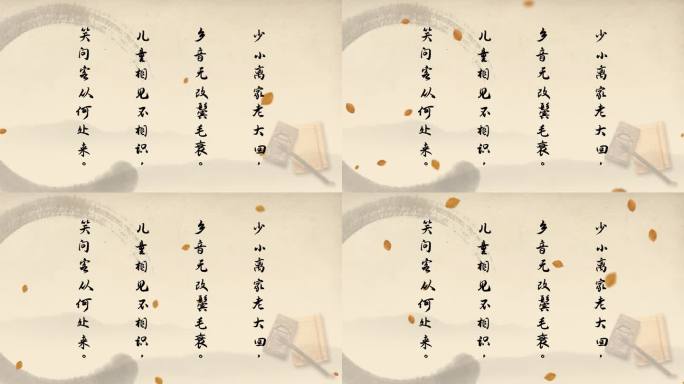 少小离家老大回，
乡音无改鬓毛衰。
儿童相见不相识，
笑问客从何处来。
少小离家老大回，
乡音无改鬓毛衰。
儿童相见不相识，
笑问客从何处来。
少小离家老大回，
乡音无改鬓毛衰。
儿童相见不相识，
笑问客从何处来。
少小离家老大回，
乡音无改鬓毛衰。
儿童相见不相识，
笑问客从何处来。